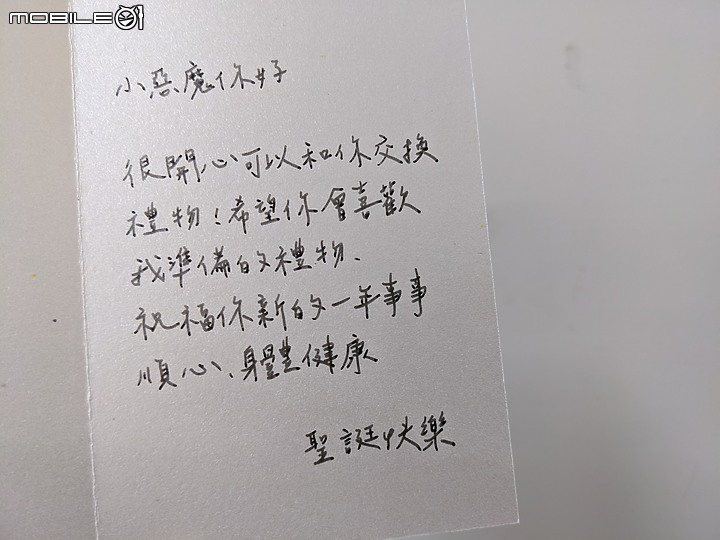 MOBILE01
小惡魔你好
很開心可以和你交換
禮物!希望你會喜歡
我準備的禮物、
祝福你新的一年事事
順心、身體健康
聖誕快樂